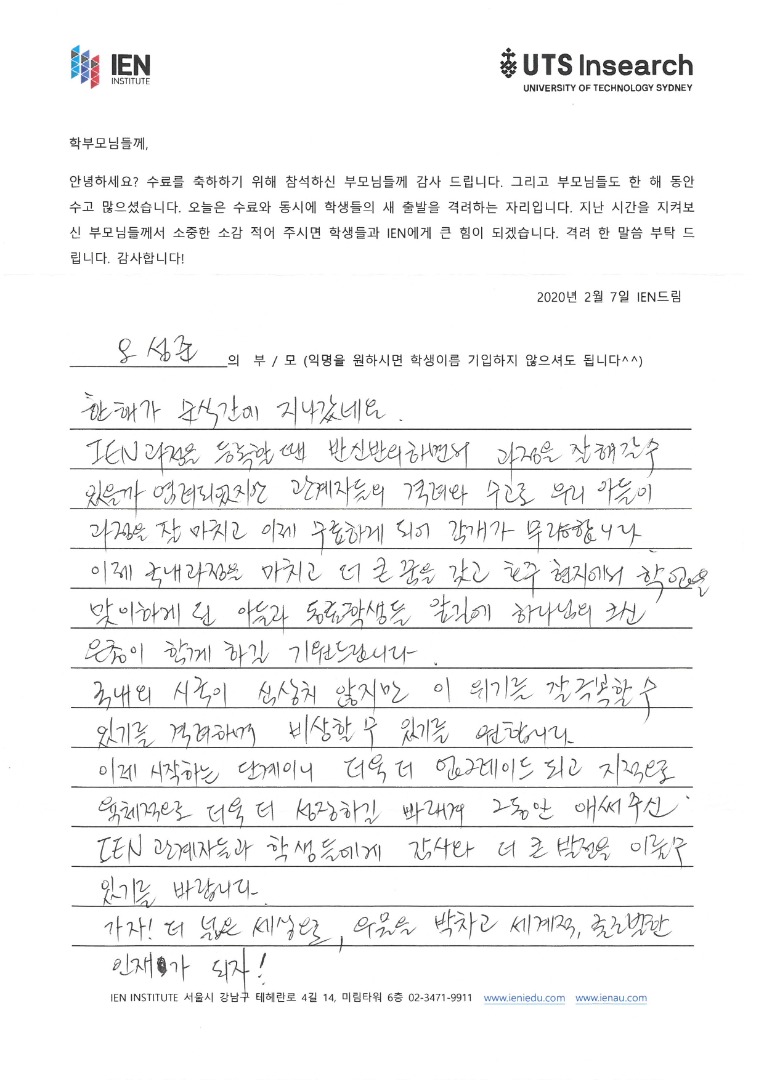 IEN
INSTITUTE
UTS Insearch
UNIVERSITY OF TECHNOLOGY SYDNEY
학부모님들께,
안녕하세요? 수료를 축하하기 위해 참석하신 부모님들께 감사 드립니다. 그리고 부모님들도 한 해 동안
수고 많으셨습니다. 오늘은 수료와 동시에 학생들의 새 출발을 격려하는 자리입니다. 지난 시간을 지켜보
신 부모님들께서 소중한 소감 적어 주시면 학생들과 IEN에게 큰 힘이 되겠습니다. 격려 한 말씀 부탁 드
립니다. 감사합니다!
2020년 2월 7일 IEN드림
오성준 의 부 / 모 (익명을 원하시면 학생이름 기입하지 않으셔도 됩니다^^)
한해가 순식간에 지나갔네요.
IEN과정을 등록할때 반신반의하면서 과정을 잘해갈수
있을까 염려되었지만 관계자들의 격려와 수고로 우리 아들이
과정을 잘 마치고 이제 수료하게 되어 감개가 무량합니다
이제 국내과정을 마치고 더 큰 꿈을 갖고 호주 현지에서 학업을
맞이하게 된 아들과 동료학생들 앞길에 하나님의 크신
은총이 함께 하길 기원드립니다.
국내외 시국이 심상치 않지만 이 위기를 잘 극복할 수
있기를 격려하며 비상할 수 있기를 원합니다.
이제 시작하는 단계이니 더욱 더 업그레이드 되고 지적으로
육체적으로 더욱 더 성장하길 바래며 그동안 애써주신
IEN 관계자들과 학생들에게 감사와 더 큰 발전을 이룰수
있기를 바랍니다.
가자! 더 넓은 세상으로, 우물을 박차고 세계적, 글로벌한
인재가 되자!
IEN INSTITUTE 서울시 강남구 테헤란로 4길 14, 미림타워 6층 02-3471-9911 www.ieniedu.com www.ienau.com